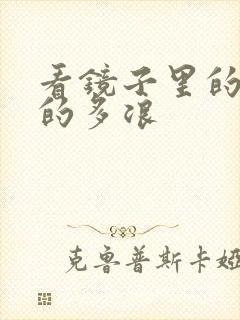 看镜子里的
的多浪
克鲁普斯卡娅